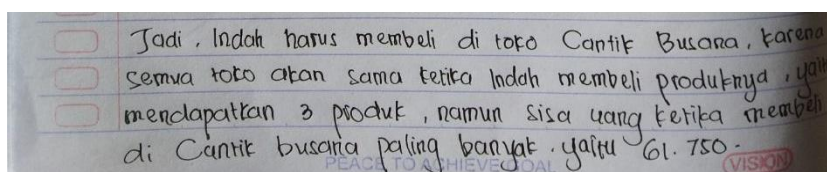 Jadi, Indah harus membeli di toko Cantik Busana, karena
semua toko akan sama ketika Indah membeli produknya, yait
mendapatkan 3 produk, namun sisa uang ketika membeli
di Cantik busana paling banyak. yaitu 61.750.
PEACE TO ACHIEVE GOAL
VISION